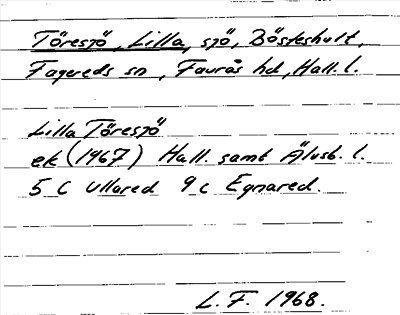 Töresjö, Lilla, sjö, Bösteshult,
Fagereds sn, Faurås hd, Hall. l.
Lilla Töresjö
ek (1967) Hall. samt Älvsb. l.
5 C Ullared 9 c Egnared.
L. F. 1968.